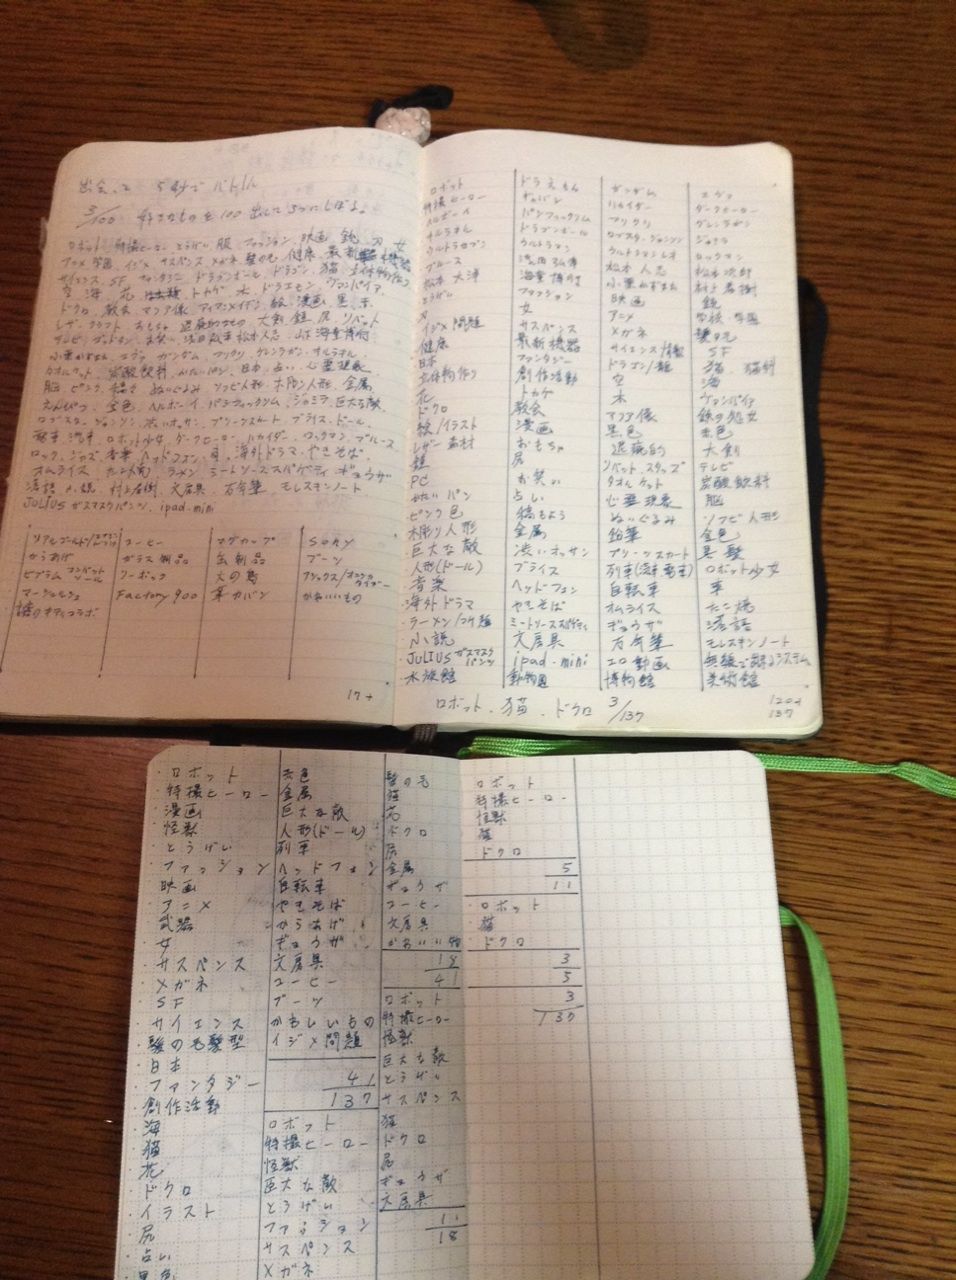 出会って 5秒でバトル
3/100 好きなものを100出して3つにしぼる。
ロボット 特撮ヒーロー とうげい 服 ファッション 映画 銃 刀 女
アニメ 学園 イジメ サスペンス メガネ 髪の毛 健康 最新機器
サイエンス SF ファンタジー ドラゴンボール ドラゴン 猫 立体物作り
空 海 花 トカゲ 木 ドラエモン ヴァンパイア
ドクロ 教会 マリア像 アイアンメイデン 絵 漫画 黒 赤
レザークラフト おもちゃ 退廃的なもの 大剣 鎧 尻 リベット
テレビ お笑い 浜田 松本人志 海雲
小栗かずまた エヴァ ガンダム フリクリ グレンラガン サルラオル
タオルケット 炭酸飲料 かたいパン 日本 占い 心霊現象
脳 ピンク ぬいぐるみ ソフビ人形 木彫り人形 金属
えんぴつ 金色 ヘルボーイ パシフィックリム ジョジラ 巨大な敵
ロブスタージョンソン 渋いオッサン プリーツスカート ブライス ドール
電車 汽車 ロボット少女 ダークヒーロー ハカイダー ロックマン ブルース
ロック ジャズ 音楽 ヘッドフォン 車 海外ドラマ やきそば
オムライス たこ焼 ラーメン ミートソーススパゲティ ギョウザ
落語 小説 村上春樹 文房具 万年筆 モレスキンノート
JULIUS ガスマスクパンツ ipad-mini
リアルゴールド コーヒー マグカップ SONY
からあげ ガラス製品 缶 製品 ブーツ
コンバットツール リーボック 火の鳥
マーシャル Factory900 革カバン かわいいもの
17+
ロボット ドラえもん ガンダム エヴァ
特撮ヒーロー ハカイダー ダークヒーロー
ヘルボーイ パシフィックリム フリクリ グレンラガン
ドラゴンボール ロブスタージョンソン
ウルトラセブン ウルトラマン ウルトラマンレオ ロックマン
ブルース 松本人志
松本大洋 小栗かずまた 村上春樹
とうげい ファッション 映画 銃
女 アニメ 学校 学園
イジメ問題 サスペンス メガネ 髪の毛
健康 最新機器 サイエンス SF
日本 ファンタジー ドラゴン/龍 猫
立体物作り 創作活動 空 海
花 トカゲ 木 ヴァンパイア
ドクロ 教会 マリア像 鉄の処女
絵/イラスト 漫画 黒色 赤色
レザー 素材 おもちゃ 退廃的 大剣
鎧 尻 リベット、スタッズ テレビ
PC お笑い タオルケット 炭酸飲料
かたいパン 占い 心霊現象 脳
ピンク色 ぬいぐるみ ソフビ人形
木彫り人形 金属 鉛筆 金色
巨大な敵 渋いオッサン プリーツスカート
人形(ドール) ブライス 列車(汽車 電車) ロボット少女
音楽 ヘッドフォン 自転車 車
海外ドラマ やきそば オムライス たこ焼
ラーメン/つけ麺 ミートソーススパゲティ ギョウザ 落語
小説 文房具 万年筆 モレスキンノート
JULIUS ガスマスクパンツ ipad-mini エロ動画
水族館 動物園 博物館 美術館
ロボット、猫、ドクロ 3/137
120+
137
ロボット
特撮ヒーロー
漫画
怪獣
とうげい
ファッション
映画
アニメ
武器
女
サスペンス
メガネ
SF
サイエンス
髪の毛髪型
日本
ファンタジー
創作活動
海
猫
花
ドクロ
イラスト
尻
占い
黒色
赤色
金属
巨大な敵
人形(ドール)
列車
ヘッドフォン
自転車
やきそば
からあげ
ギョウザ
文房具
コーヒー
ブーツ
イジメ問題
41
137
ロボット
特撮ヒーロー
怪獣
巨大な敵
とうげい
ファッション
サスペンス
メガネ
髪の毛
猫
花
ドクロ
尻
金属
ギョウザ
コーヒー
文房具
かわいい物
18
41
ロボット
特撮ヒーロー
怪獣
巨大な敵
とうげい
サスペンス
猫
ドクロ
尻
ギョウザ
文房具
11
18
ロボット
特撮ヒーロー
怪獣
猫
ドクロ
5
11
ロボット
猫
ドクロ
3
5
3
137